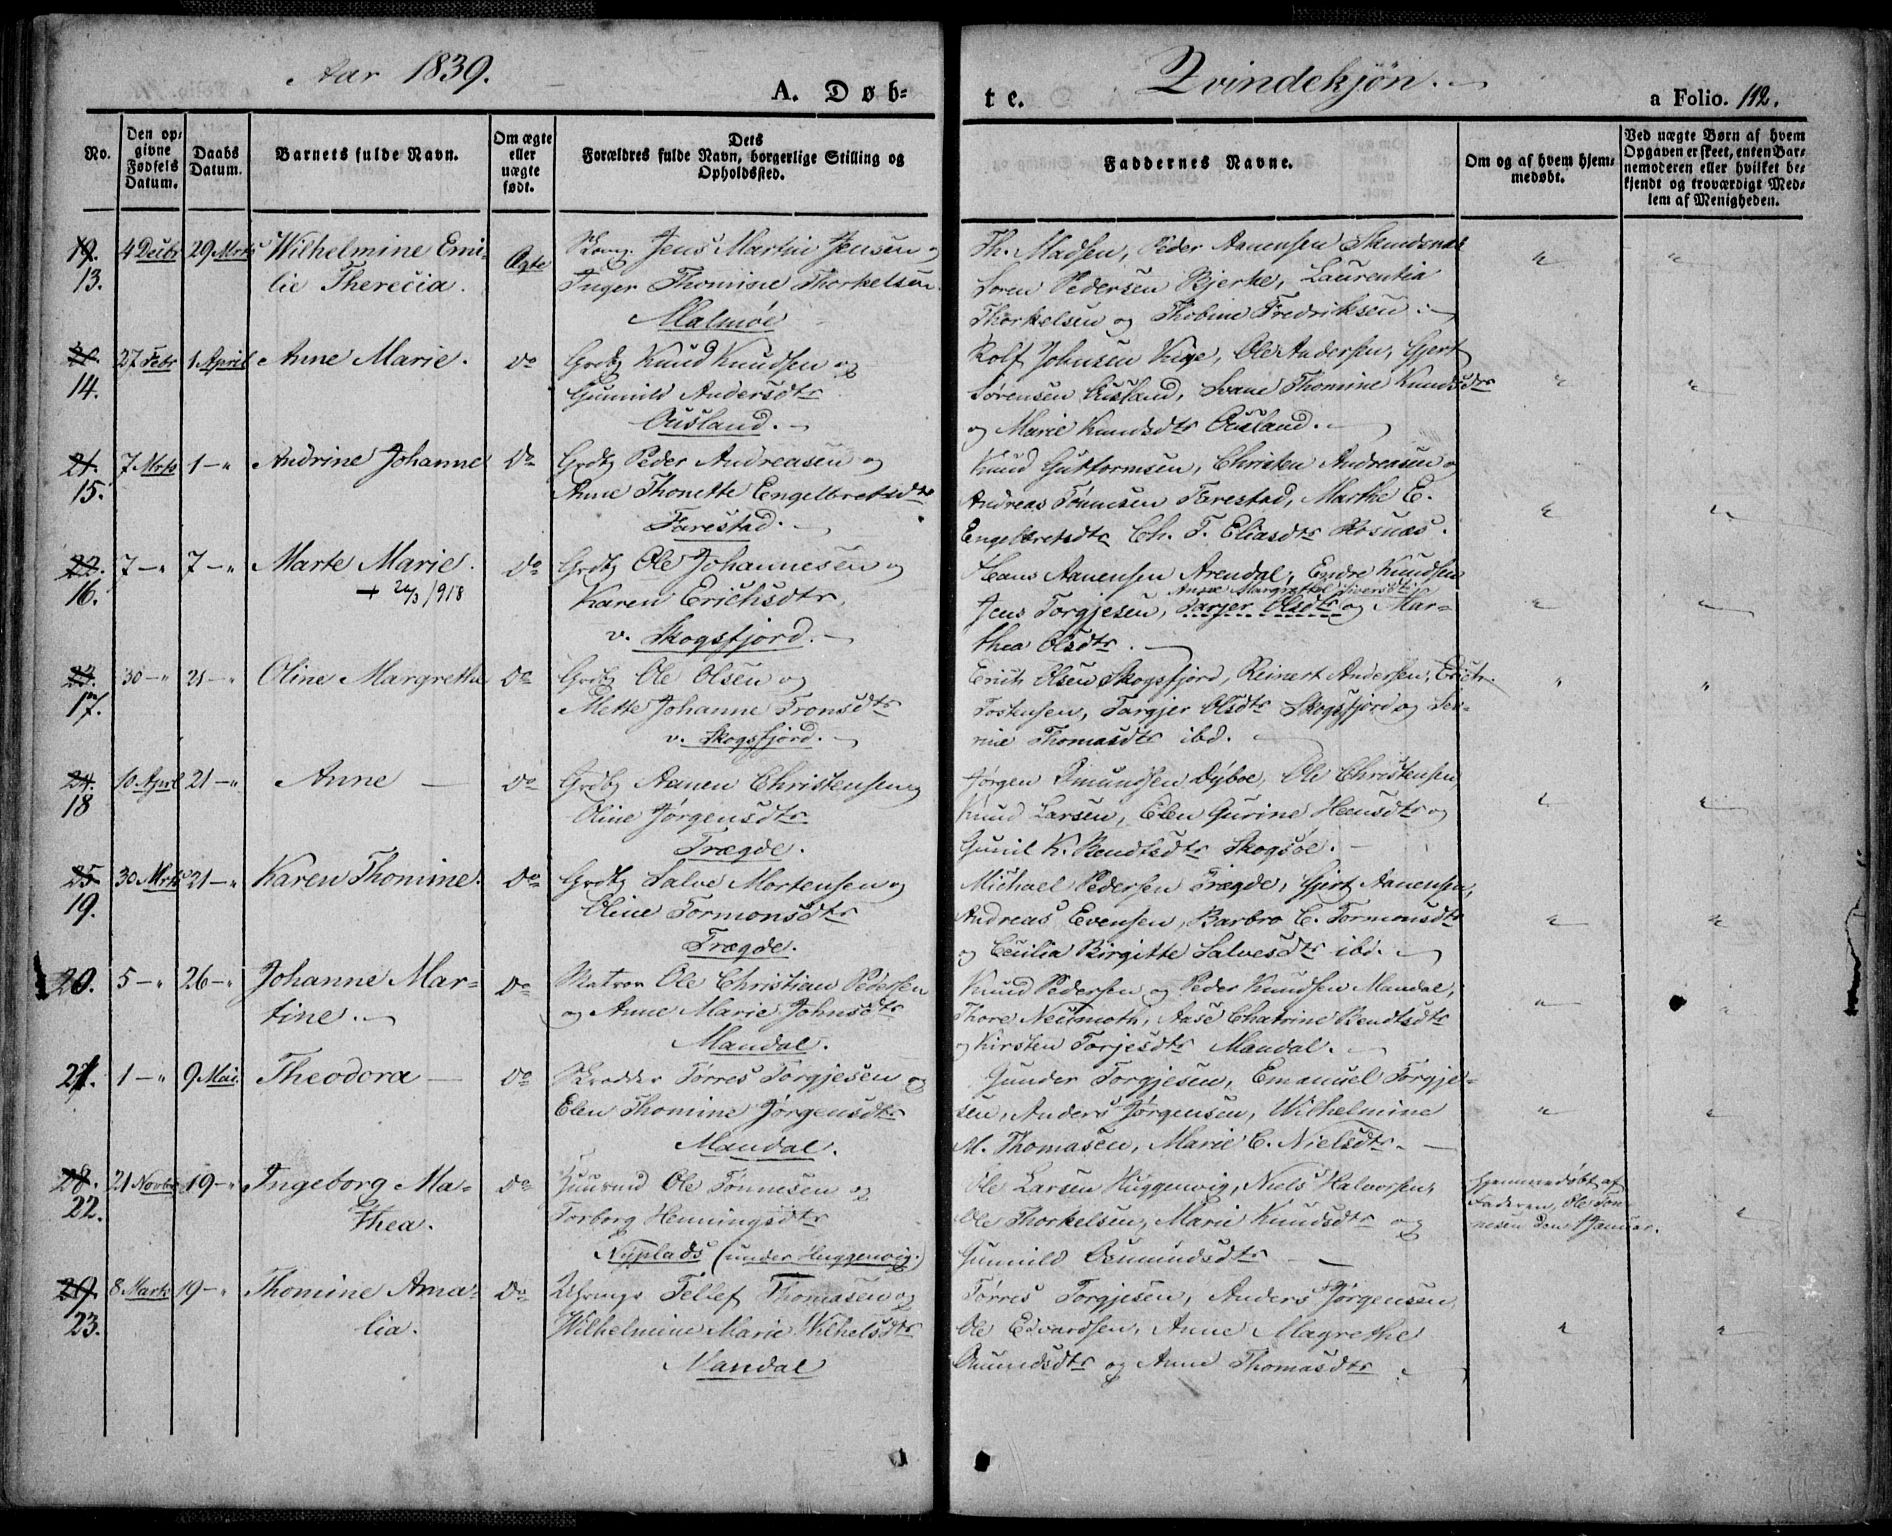 Aar 1839.
A. Døb-
te.
Qvindekjøn.
a Folio. 112.
No.
Den op-
givne
Fødsels
Datum.
Daabs
Datum.
Barnets fulde Navn.
Om ægte
eller
uægte
født.
Dets
Forældres fulde Navn, borgerlige Stilling og
Opholdssted.
Faddernes Navne.
Om og af hvem hjem-
medøbt.
Ved uægte Børn af hvem
Opgaven er skeet, enten Bar-
nemoderen eller hvilket be-
kjendt og troværdigt Med-
lem af Menigheden.
19. 4 Decbr 29 Mrts Wilhelmine Emi- Ægte Jens Martin Jensen og
13. lie Therecia. Inger Thomine Thorkelsen
Malmøe
Th. Madsen, Peder Aanensen
Søren Pedersen Bjerke, Laurentia
Thorkelsen og Thobine Fredriksen.
14. 27 Febr 1 April Anne Marie. Do Grdbg Knud Knudsen og
Gunnild Andersdtr
Ousland.
Rolf Johnsen Kige, Ole Andersen, Gjert
Sørensen Ousland, Svane Thomine Knudsdtr
og Marie Knudsdtr Ousland.
21. 7 Mrts 1 - " Andrine Johanne Do Grdbg Peder Andreasen og
15. Anne Thonette Engelbretsdtr
Farestad.
Knud Guttormsen, Christen Andreasen og
Andreas Tønnesen Farestad, Marthe E.
Engelbretsdtr Ch. T. Eliasdtr Rosnæs.
22. 7 - " 7 - " Marte Marie. Do Grdbg Ole Johannesen og
16. + 24/3 1918 Karen Erichsdtr,
v. Skogsfjord.
Hans Aanensen Arendal, Endre Knudsen
Anne Margrethe Siversdtr
Jens Torgjesen, Tarjer Olsdtr og Mar-
thea Olsdtr.
23. 30 - " 21 - " Oline Margrethe Do Grdbg Ole Olsen og
17. Mette Johanne Tronsdtr
v. Skogsfjord.
Erich Olsen Skogsfjord, Reinert Andersen, Erich
Tostensen, Targjer Olsdtr Skogsfjord og Se-
rine Thomasdtr ibd.
24. 10 Aprl 21 - " Anne Do Grdbg Aanen Christensen og
18 Oline Jørgensdtr
Trægde.
Jørgen Omundsen Dyboe, Ole Christensen,
Knud Larsen, Elen Gurine Hansdtr og
Gunil K. Bendtsdtr Skogsøe.
25 30 Mrts 21 - " Karen Thomine. Do Grdbg Salve Mortensen og
19. Oline Tormonsdtr
Trægde.
Michael Pedersen Trægde, Gjert Aanensen,
Andreas Evensen, Barbro C. Tormonsdtr
og Cecilia Birgitte Salvesdtr ibd.
20. 5 - " 26 - " Johanne Mar- Do Matros Ole Christian Pedersen
tine. og Anne Marie Johnsdtr
Mandal.
Knud Pedersen og Peder Knudsen Mandal,
Thore Neumoth, Aase Chatrine Bendtsdtr
og Kirsten Torjesdtr Mandal.
21. 1 - " 9 Mai. Theodora Do Skrædder Tørres Torgjesen og
Elen Thomine Jørgensdtr
Mandal.
Gunder Torgjesen, Emanuel Torgje-
sen, Anders Jørgensen, Wilhelmine
M. Thomasen, Marie C. Nielsdtr.
28. 21 Novbr 19 - " Ingeborg Ma- Do Huusmd Ole Tønnesen og
22. thea. Torborg Henningsdtr
Nyplads (under Huggenvig.)
Ole Larsen Huggenvig, Niels Halvorsen,
Ole Thorkelsen, Marie Knudsdtr og
Gunnild Osmundsdtr
Hjemmedøbt af
Faderen, Ole Tøn-
nesen den 1 Januar.
29. 8 Marts 19 - " Thomine Ama- Do Tellef Thomasen og
23. lia. Wilhelmine Marie Wilhelsdtr
Mandal
Tørres Torgjesen, Anders Jørgensen,
Ole Edvardsen, Anne Magrethe
Omundsdtr og Anne Thomasdtr